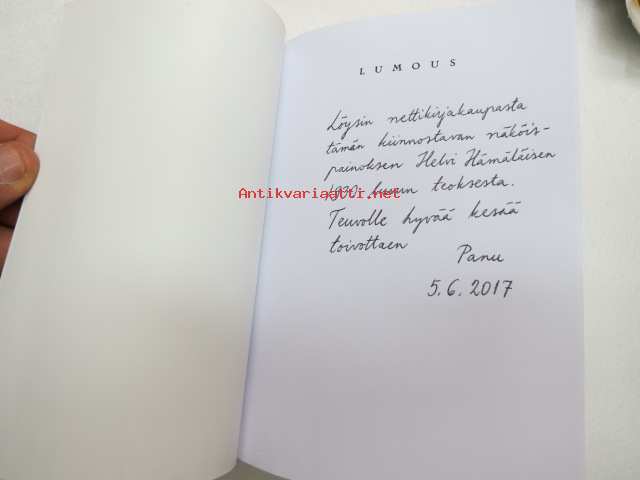 LUMOUS
Löysin nettikirjakaupasta
tämän kiinnostavan näköis-
painoksen Helvi Hämäläisen
Antikvariaatti.net
1930-luvun teoksesta.
Teuvolle hyvää kesää
toivottaen
Panu
5.6.2017